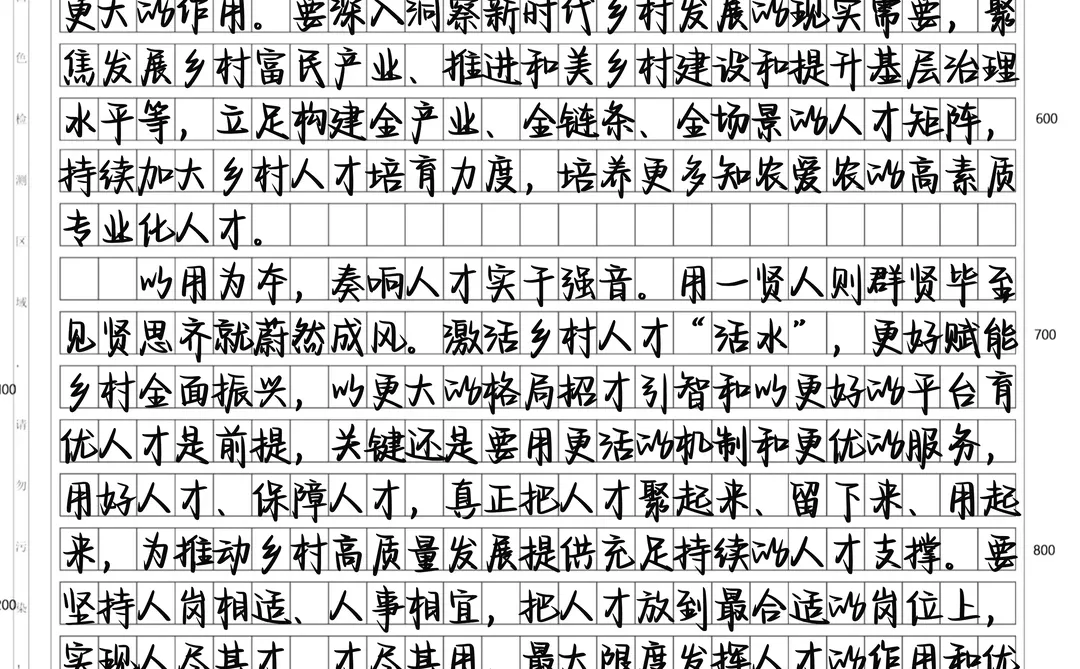 更大的作用。要深入洞察新时代乡村发展的现实需要，聚
焦发展乡村富民产业、推进和美乡村建设和提升基层治理
水平等，立足构建全产业、全链条、全场景的人才矩阵，
600
持续加大乡村人才培育力度，培养更多知农爱农的高素质
专业化人才。
以用为本，奏响人才实干强音。用一贤人则群贤毕至
见贤思齐就蔚然成风。激活乡村人才“活水”，更好赋能
700
乡村全面振兴，以更大的格局招才引智和以更好的平台育
优人才是前提，关键还是要用更活的机制和更优的服务，
用好人才、保障人才，真正把人才聚起来、留下来、用起
来，为推动乡村高质量发展提供充足持续的人才支撑。要
800
坚持人岗相适、人事相宜，把人才放到最合适的岗位上，
实现人尽其才、才尽其用，最大限度发挥人才的作用和优
色
检
测
区
域
·
请
勿
污
染